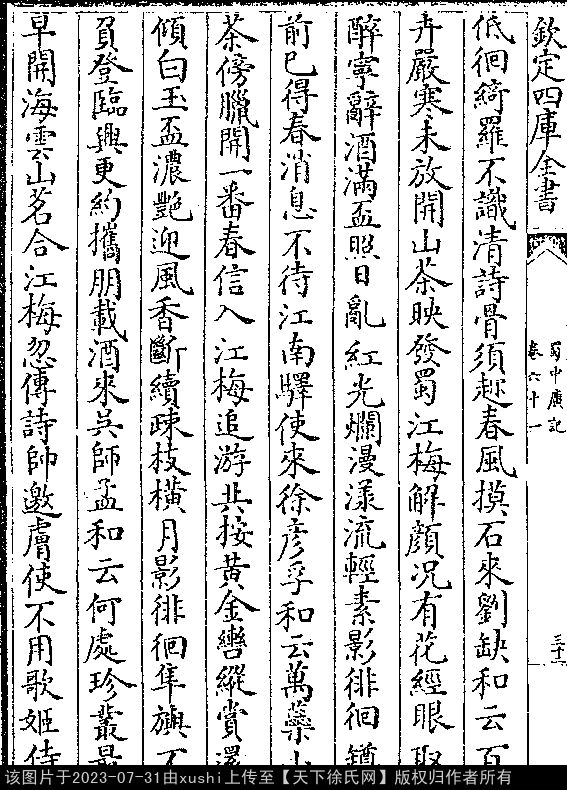 欽定四庫全書
蜀中廣記
卷六十一
三十一
低徊綺羅不識清詩骨須趂春風摸石來劉缺和云百
卉嚴寒未放開山茶映發蜀江梅解顏况有花經眼取
醉寧辭酒滿盃照日亂紅光爛漫漾流輕素影徘徊
前已得春消息不待江南驛使來徐彦孚和云萬藥
茶傍臘開一番春信入江梅追游共按黄金轡縱賞還
傾白玉盃濃艷迎風香斷續疎枝橫月影徘徊隼旟不
負登臨興更約攜朋載酒來吳師孟和云何處珍叢最
早開海雲山茗合江梅忽傳詩帥邀膚使不用歌姬侍
该图片于2023-07-31由xushi上传至【天下徐氏网】版权归作者所有